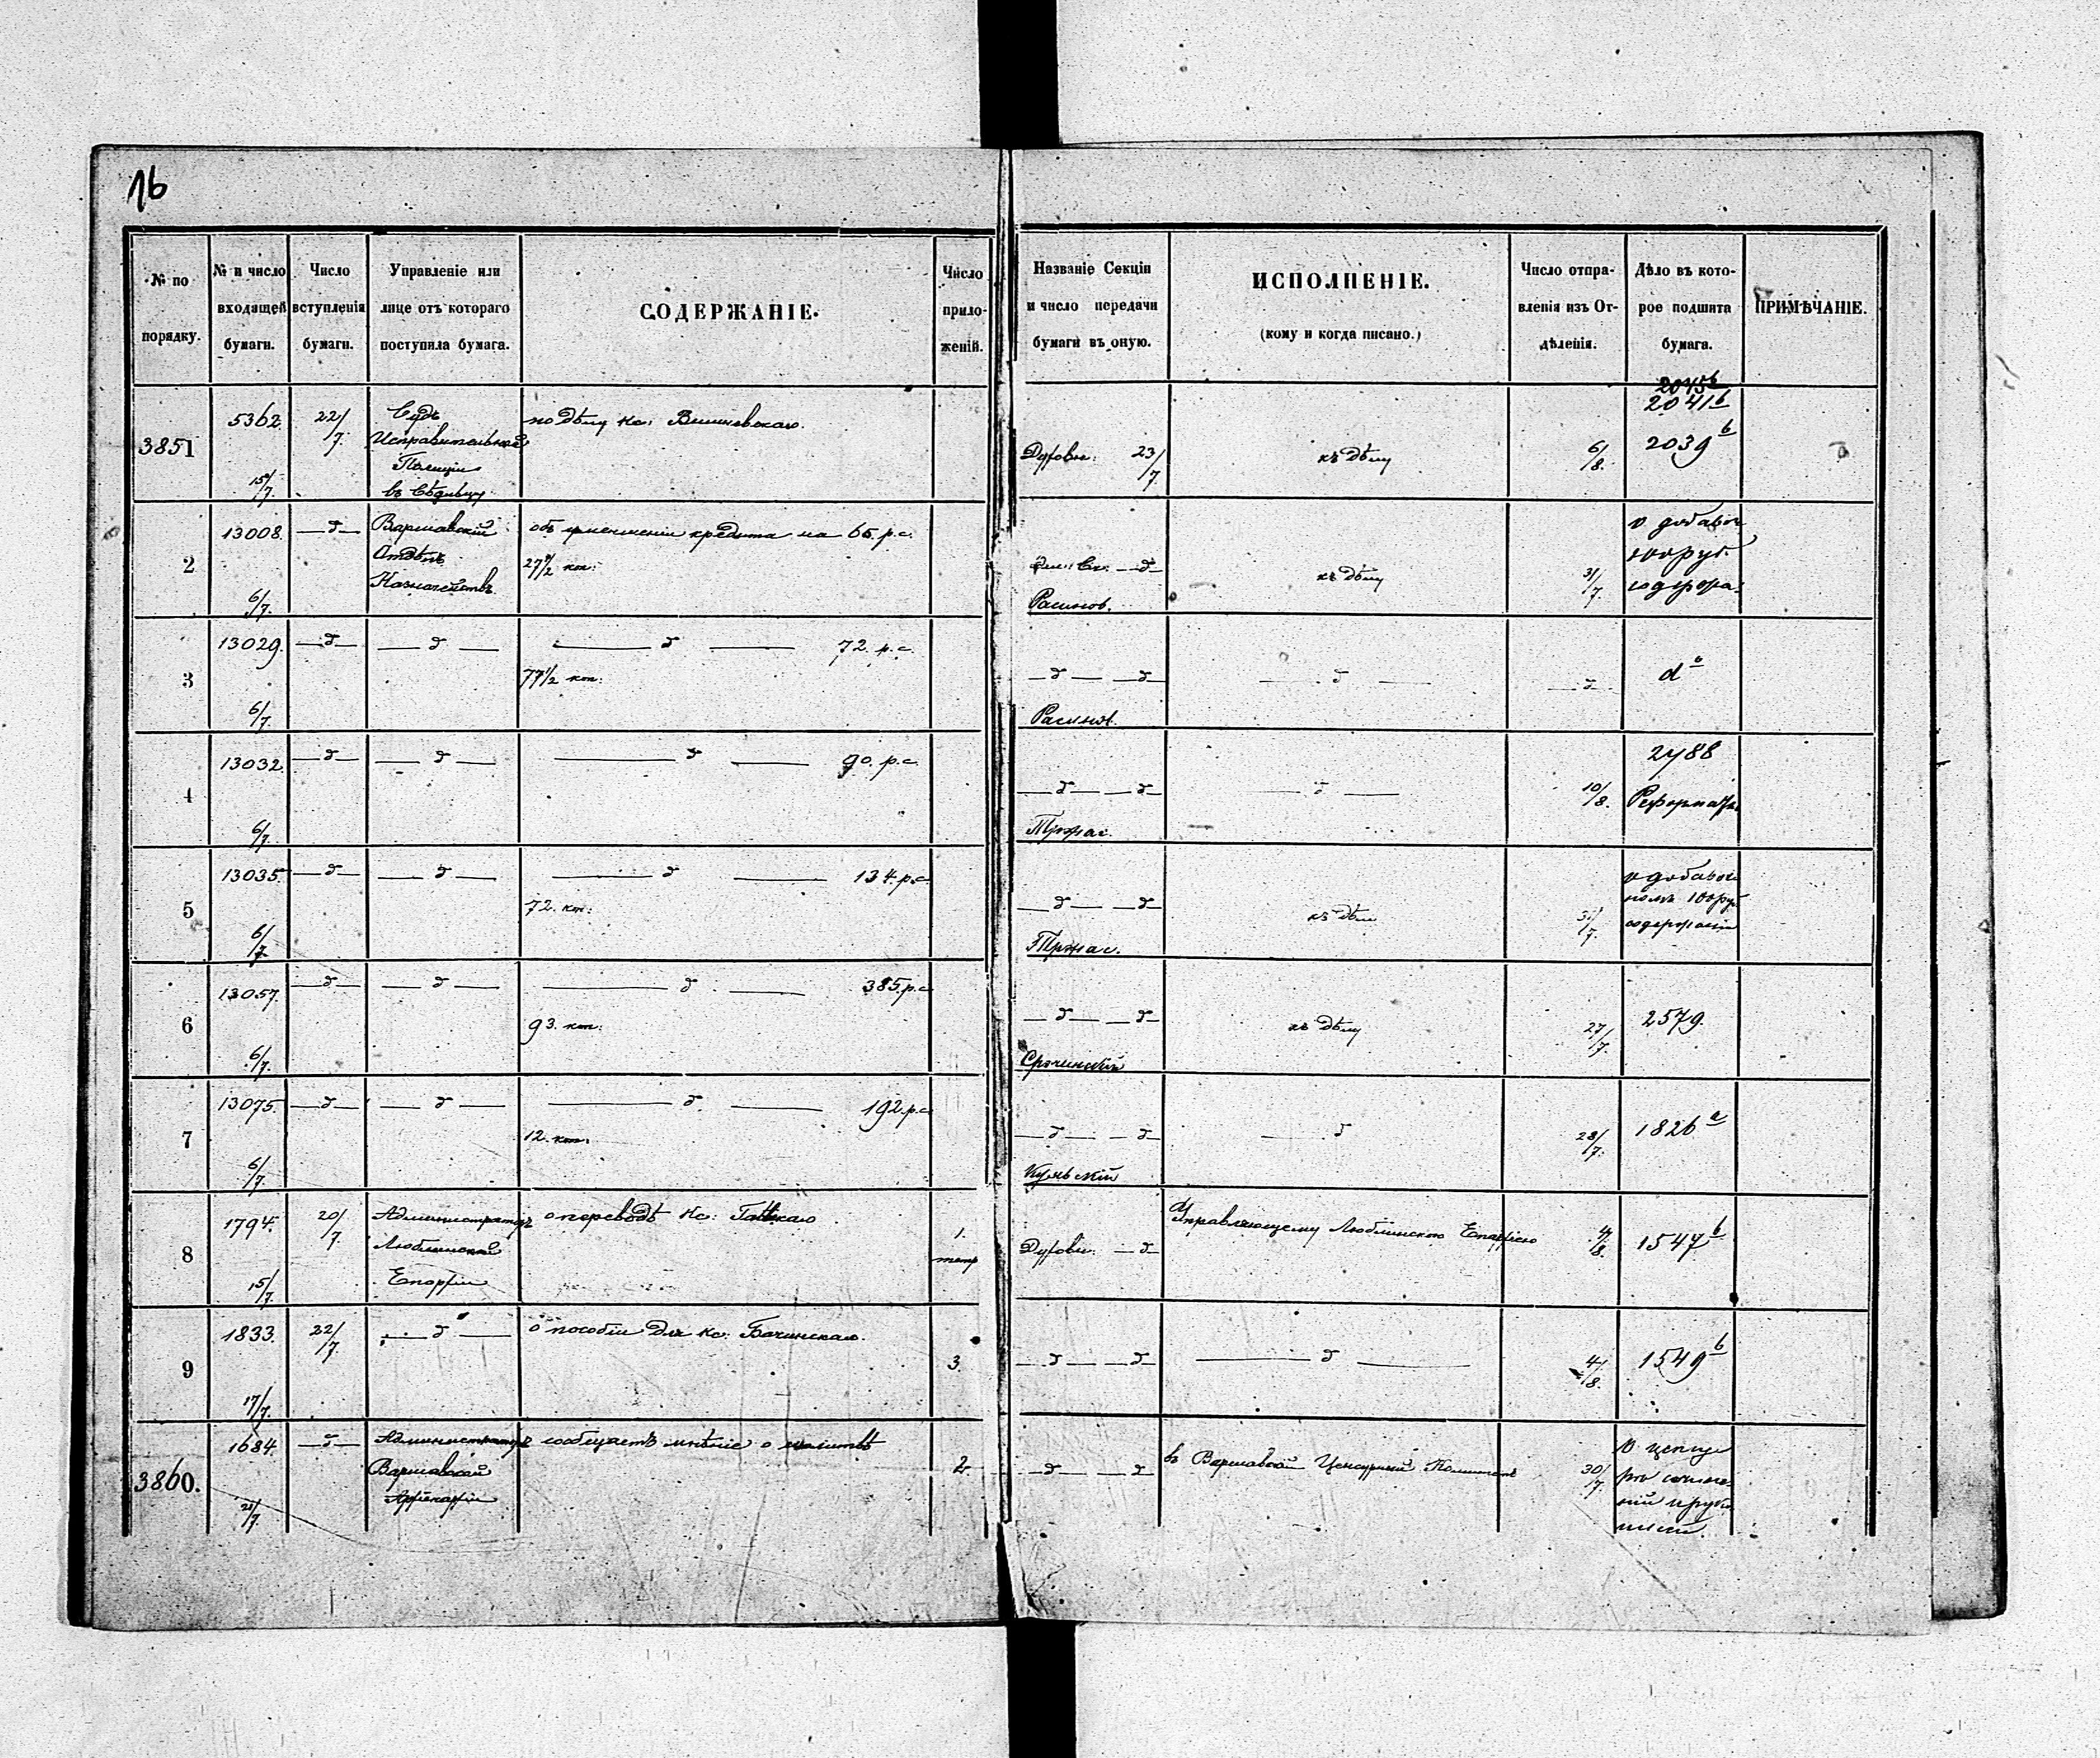 16
№ по порядку.
№ и число входящей бумаги.
Число вступленія бумаги.
Управленіе или лице отъ котораго поступила бумага.
СОДЕРЖАНІЕ.
Число приложеній.
Названіе Секціи и число передачи бумаги въ оную.
ИСПОЛНЕНІЕ.
(кому и когда писано.)
Число отправленія изъ Отдѣленія.
Дѣло въ которое подшита бумага.
ПРИМѢЧАНІЕ.
3851
5362
15/7.
22/7.
Судъ
Исправительной
Полиціи
въ Сѣдльцу
по дѣлу Кс:
23/7
къ дѣлу
6/8.
2045b
2041b
2039b
2
13008.
6/7.
—д—
Варшавскій
Отдѣлъ
Казначействъ
объ уменьшеніи кредита на 65. р.с.
27½ коп:
—д—
къ дѣлу
31/7.
о добавоч
100 руб.
содержа.
3
13029.
6/7.
—д—
— д —
— д — 72. р.с.
77½ коп:
—д— —д—
— д —
—д—
d°
4
13032.
6/7.
—д—
— д —
— д — 90. р.с.
—д— —д—
— д —
10/8.
2488
5
13035.
6/7.
—д—
— д —
— д — 134. р.с.
72. коп:
—д— —д—
къ дѣлу
31/7.
о добавоч
номъ 100 руб
содержаніи
6
13057.
6/7.
—д—
— д —
— д — 385. р.с.
93. коп:
—д— —д—
къ дѣлу
27/7.
2579.
7
13075.
6/7.
—д—
— д —
— д — 192. р.с.
12. коп:
—д— —д—
— д
28/7.
1826a
8
1794.
15/7.
20/7.
Администраторъ
Люблинской
Епархіи
о переводѣ Кс:
1.
—д—
Управляющему Люблинскою Епархіею
4/8.
1547b
9
1833.
17/7.
22/7.
— д —
о пособіи для Кс: Бачинскаго.
3.
—д— —д—
— д —
4/8.
1549b
3860.
1684.
21/7.
—д—
Администраторъ
Варшавской
Архіепархіи
сообщаетъ мнѣніе о молитвѣ
2.
—д— —д—
въ Варшавскій Цензурный Комитетъ
30/7.